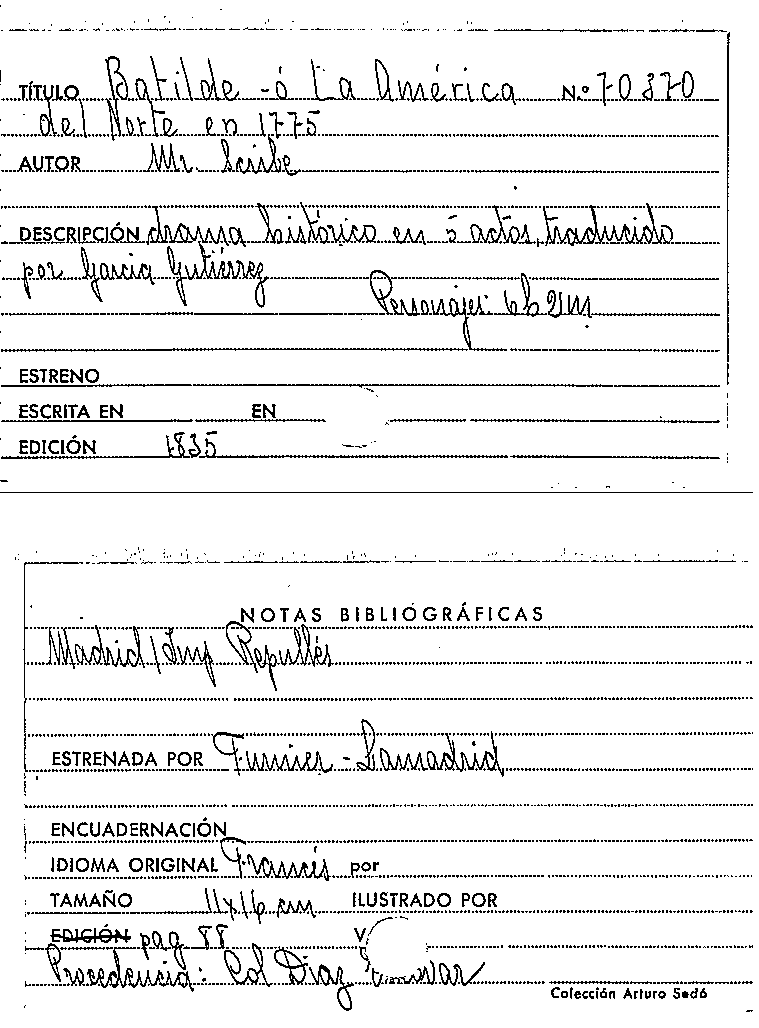 TÍTULO Batilde - ó La América N.º 70370
del Norte en 1775
AUTOR Mr. Scribe
DESCRIPCIÓN drama histórico en 5 actos, traducido
por García Gutiérrez
Personajes: 6h 2m
ESTRENO
ESCRITA EN EN
EDICIÓN 1835
NOTAS BIBLIOGRÁFICAS
Madrid / Imp Repullés
ESTRENADA POR Furnier - Lamadrid
ENCUADERNACIÓN
IDIOMA ORIGINAL Francés por
TAMAÑO 11x16 cm ILUSTRADO POR
EDICIÓN pag 88 V
Procedencia: Col Diaz
Colección Arturo Sedó